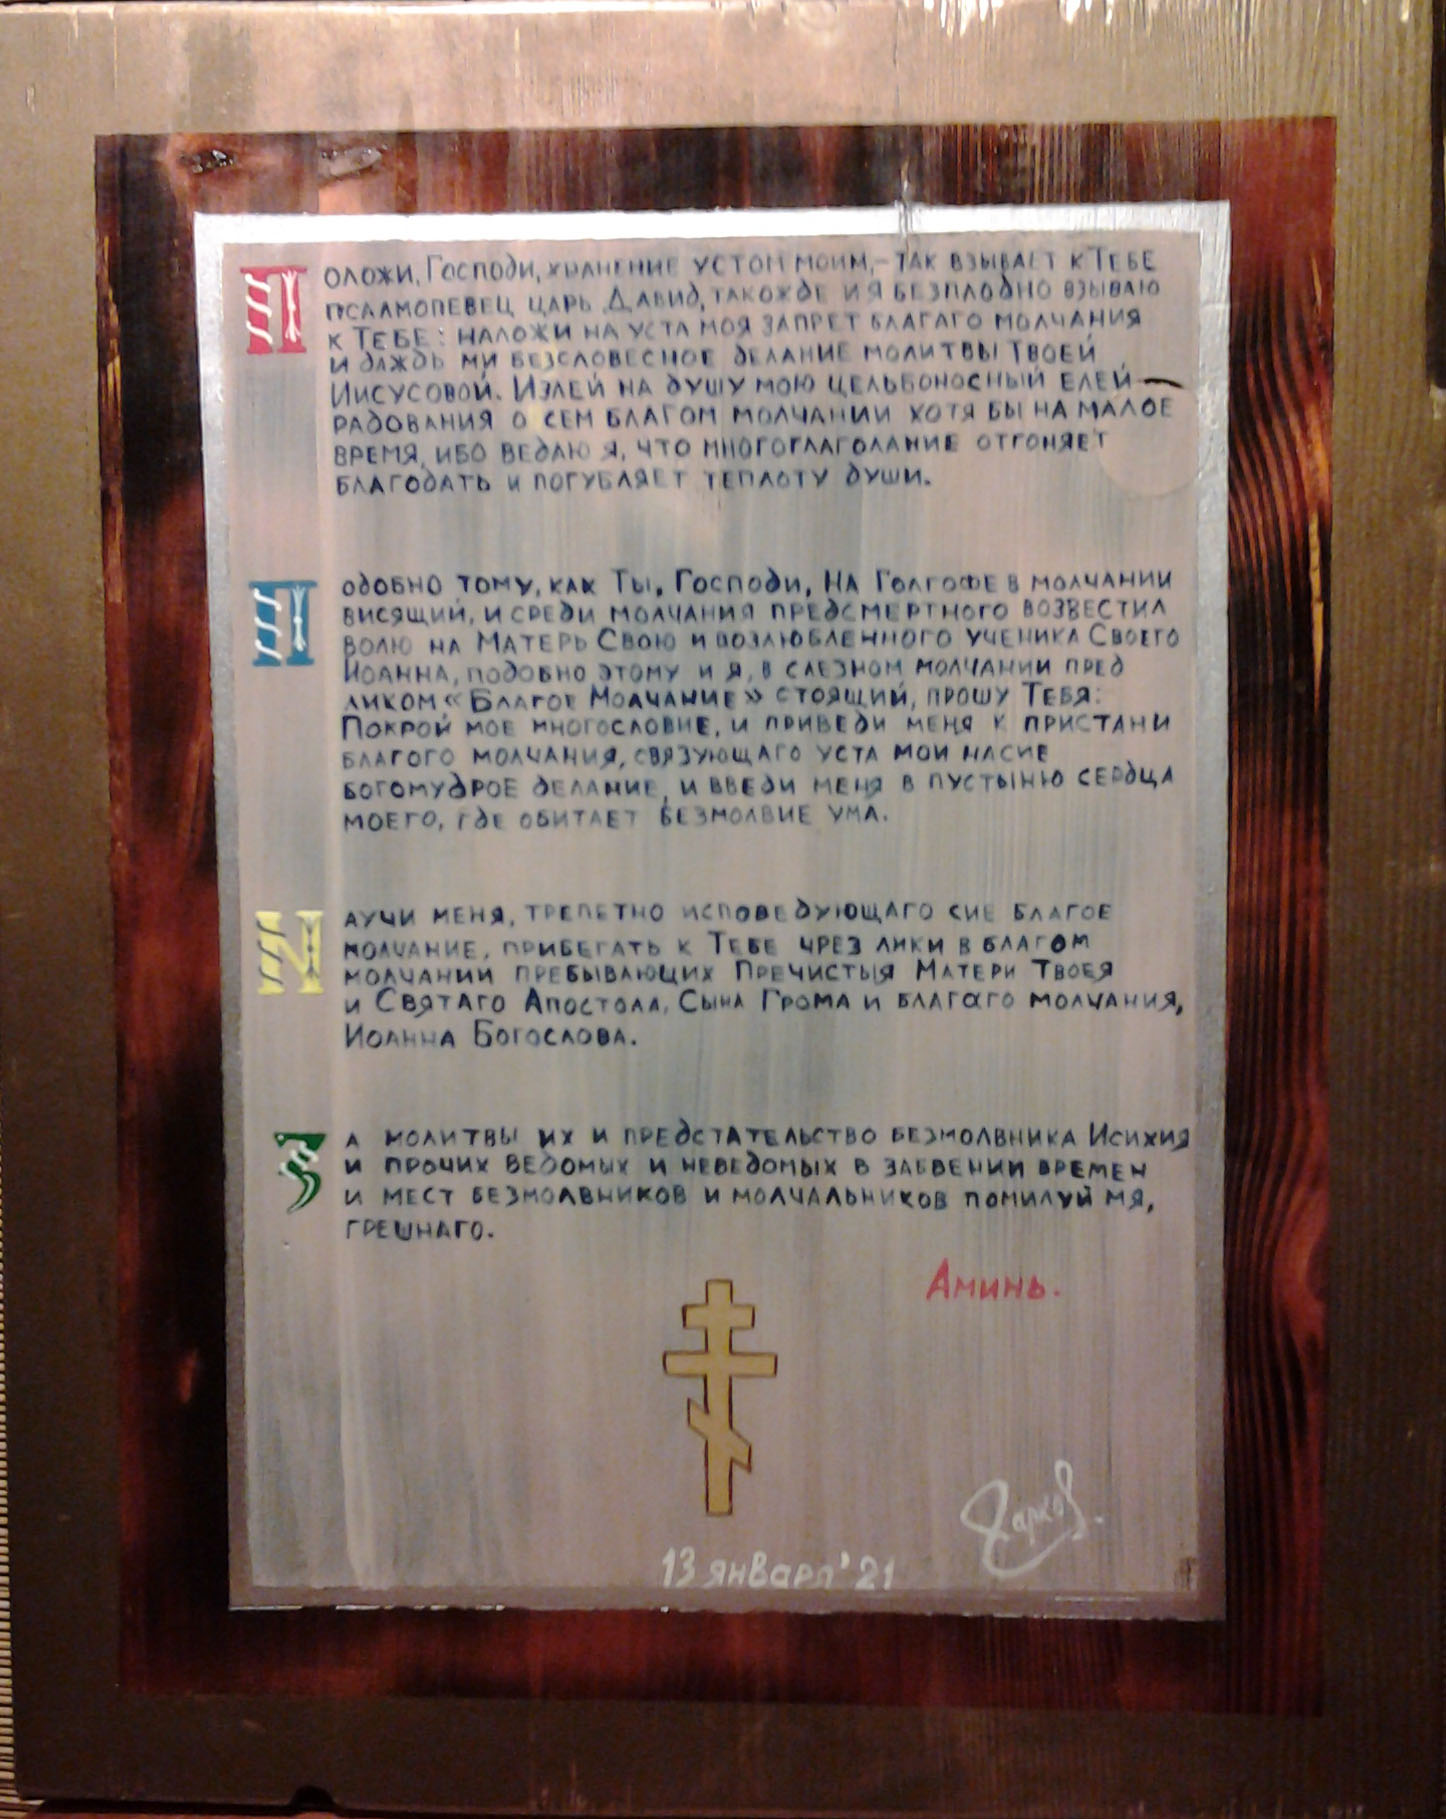 Положи, Господи, хранение устом моим, – так взывает к Тебе
псалмопевец царь Давид, такожде и я безплодно взываю
к Тебе: наложи на уста моя запрет благаго молчания
и даждь ми безсловесное делание молитвы Твоей
Иисусовой. Излей на душу мою цельбоносный елей —
радования о сем благом молчании хотя бы на малое
время, ибо ведаю я, что многоглаголание отгоняет
благодать и погубляет теплоту души.
Подобно тому, как Ты, Господи, на Голгофе в молчании
висящий, и среди молчания предсмертного возвестил
волю на Матерь Свою и возлюбленного ученика Своего
Иоанна, подобно этому и я, в слезном молчании пред
ликом «Благое Молчание» стоящий, прошу Тебя:
Покрой мое многословие, и приведи меня к пристани
благого молчания, связующаго уста мои на сие
богомудрое делание, и введи меня в пустыню сердца
моего, где обитает безмолвие ума.
Научи меня, трепетно исповедующаго сие благое
молчание, прибегать к Тебе чрез лики в благом
молчании пребывающих Пречистыя Матери Твоея
и Святаго Апостола, Сына Грома и благаго молчания,
Иоанна Богослова.
За молитвы их и предстательство безмолвника Исихия
и прочих ведомых и неведомых в забвении времен
и мест безмолвников и молчальников помилуй мя,
грешнаго.
Аминь.
Харков.
13 января'21